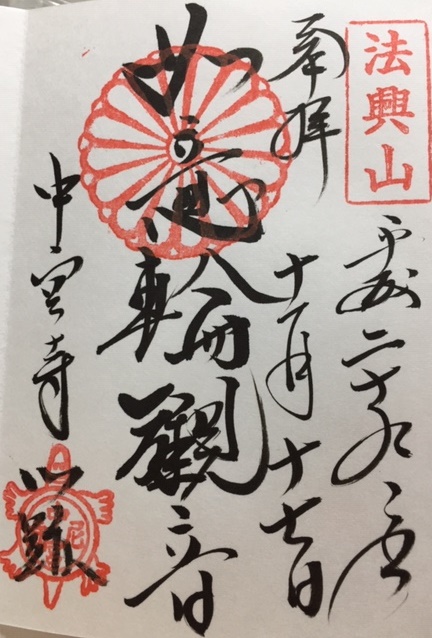 法興山
平成二十九年
奉拝
十一月十七日
如意輪觀世音
中宮寺
門跡